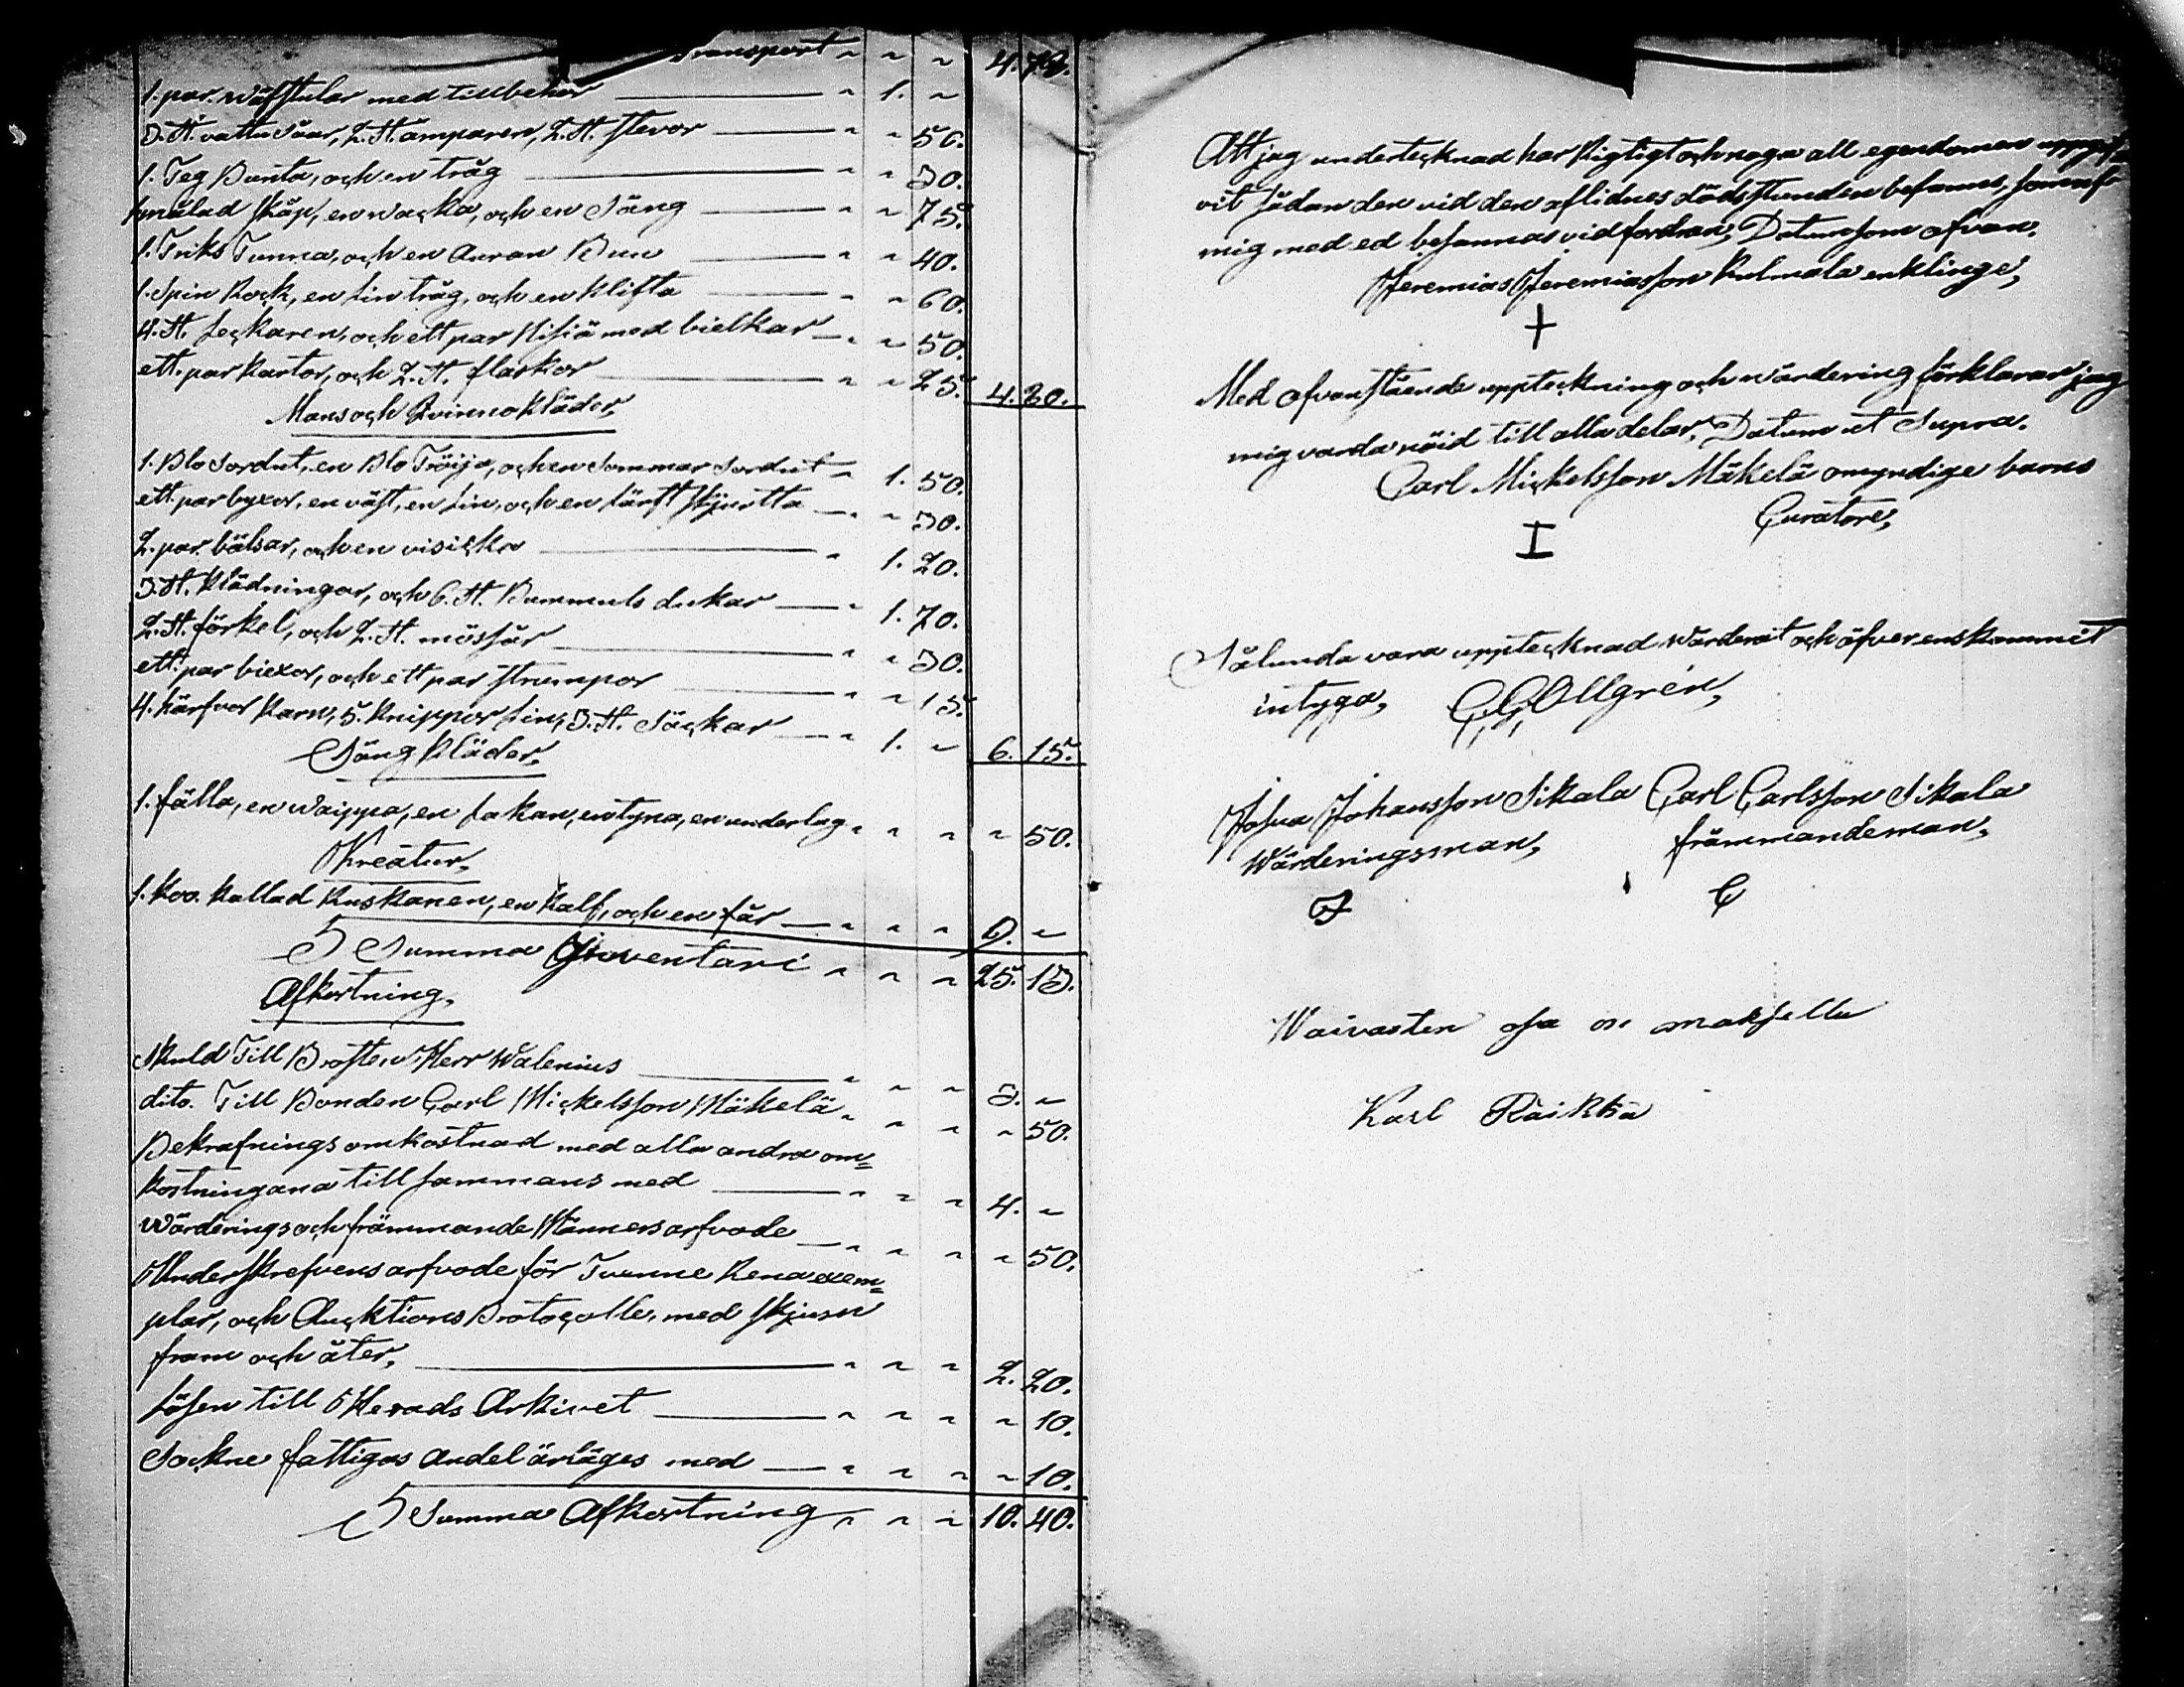 Transport " " " 4. 78.
1. par. wäfstular med tillbehör " 1. "
3. St. vattu Såar, 2. St ämparen, 2. St. stevor " " 50.
1. Teg Bunta, och en tråg " " 30.
1 målad skåp, en wacka, och en Säng " " 75.
1. Friks Tunna, och en Auran Buu " " 40.
1. Spin Rock, en lin tråg, och en Klifta " " 60.
4. St. Leckaren, och ett par Hisiä med bielkar " " 50.
ett. par Kartor, och 2. St. flaskor " " 25. 4. 30.
Mans och Qvinnokläder,
1. Blo Sordut, en Blo Tröija, och en Sommar Sordut " 1. 50.
ett. par byxor, en väst, en lin, och en lärft skjortta " " 30.
2. par. bälsar, och en visicka " 1. 20.
3. St. Klädningar, och 6. St. Bummuls dukar " 1. 70.
2. St. förkel, och 2. St. mössår " " 30.
ett. par biexor, och ett par strumpor " " 15.
4. härfvor Karn, 5. Knippor lin, 3. St. Säckar " 1. " 6. 15.
Säng Kläder,
1. fälla, en waippa, en lakan, en tyna, en underlag " " " " 50.
Kreatur,
1. Koo. kallad Kuskanen, en Kalf, och en får " " " 9. "
Summa Inventari " " " 25. 13.
Afkortning,
Skuld Till Prosten Herr Walenius " " " 3. "
dito. Till Bonden Carl Mickelsson Mäkelä " " " " 50.
Bekrafnings omkostnad med alla andra om=
kostningana till sammans med " " " 4. "
Wärderings och främmande Männers arfvode " " " " 50.
Underskrefvens arfvode för Tvenne Rena exem=
plar, och Aucktions Protocolle, med skjusn
fram och åter, " " " 2. 20.
Lösen till Herads Arkivet " " " " 10.
Sockne fattigas andel ärläges med " " " " 10.
Summa Afkortning " " " 10. 40.
Att jag undertecknad har Rigtigt och noga all egendomen uppgif
vit sådan den vid den aflidnes dödsstunden befanns, som af
mig med ed besannas vid fordran, Datum som ofvan,
Jeremias Jeremiasson Kulmala enklinge,
+
Med ofvanstående uppteckning och wärdering förklarar jag
mig varda nöid till alla delar, Datum ut Supra.
Carl Mickelsson Mäkelä omyndige barns
Curatore,
I
Sålunda vara upptecknad Wärderat och öfverenskommet
intyga, C, G, Ollgrén,
Josua Johansson Sikala Carl Carlsson Sikala
Wärderingsman, främmandeman,
J C
Waivasten osa on maksettu
Karl Räikkä